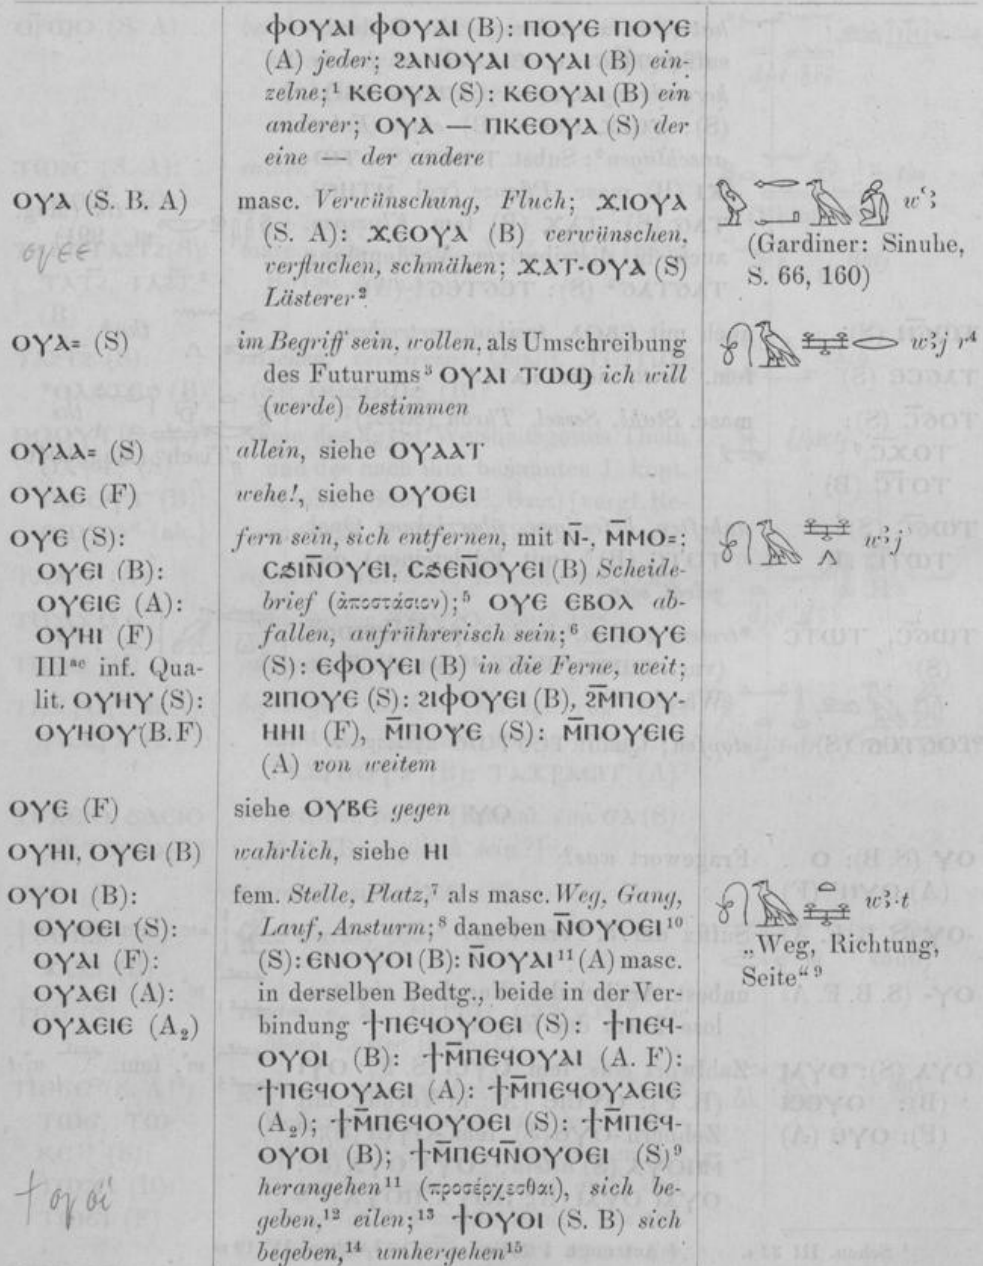 ⲫⲟⲩⲁⲓ ⲫⲟⲩⲁⲓ (B): ⲡⲟⲩⲉ ⲡⲟⲩⲉ
(A) jeder; ϩⲁⲛⲟⲩⲁⲓ ⲟⲩⲁⲓ (B) ein-
zelne;¹ ⲕⲉⲟⲩⲁ (S): ⲕⲉⲟⲩⲁⲓ (B) ein
anderer; ⲟⲩⲁ — ⲡⲕⲉⲟⲩⲁ (S) der
eine — der andere
ⲟⲩⲁ (S. B. A)
masc. Verwünschung, Fluch; ϫⲓⲟⲩⲁ
(S. A): ϫⲉⲟⲩⲁ (B) verwünschen,
verfluchen, schmähen; ϫⲁⲧ-ⲟⲩⲁ (S)
Lästerer²
wꜥꜣ
(Gardiner: Sinuhe,
S. 66, 160)
ⲟⲩⲁ= (S)
im Begriff sein, wollen, als Umschreibung
des Futurums³ ⲟⲩⲁⲓ ⲧⲱϣ ich will
(werde) bestimmen
wꜣj r⁴
ⲟⲩⲁⲁ= (S)
allein, siehe ⲟⲩⲁⲁⲧ
ⲟⲩⲁⲉ (F)
wehe!, siehe ⲟⲩⲟⲉⲓ
ⲟⲩⲉ (S):
ⲟⲩⲉⲓ (B):
ⲟⲩⲉⲓⲉ (A):
ⲟⲩⲏⲓ (F)
IIIᵃᵉ inf. Qua-
lit. ⲟⲩⲏⲩ (S):
ⲟⲩⲏⲟⲩ (B. F)
fern sein, sich entfernen, mit ⲛ̄-, ⲙ̄ⲙⲟ=:
ⲥϧⲓⲛ̄ⲟⲩⲉⲓ, ⲥϧⲉⲛ̄ⲟⲩⲉⲓ (B) Scheide-
brief (ἀποστάσιον);⁵ ⲟⲩⲉ ⲉⲃⲟⲗ ab-
fallen, aufrührerisch sein;⁶ ⲉⲡⲟⲩⲉ
(S): ⲉⲫⲟⲩⲉⲓ (B) in die Ferne, weit;
ϩⲓⲡⲟⲩⲉ (S): ϩⲓⲫⲟⲩⲉⲓ (B), ϩⲙ̄ⲡⲟⲩ-
ⲏⲏⲓ (F), ⲙ̄ⲡⲟⲩⲉ (S): ⲙ̄ⲡⲟⲩⲉⲓⲉ
(A) von weitem
wꜣj
ⲟⲩⲉ (F)
siehe ⲟⲩⲃⲉ gegen
ⲟⲩⲏⲓ, ⲟⲩⲉⲓ (B)
wahrlich, siehe ⲏⲓ
ⲟⲩⲟⲓ (B):
ⲟⲩⲟⲉⲓ (S):
ⲟⲩⲁⲓ (F):
ⲟⲩⲁⲉⲓ (A):
ⲟⲩⲁⲉⲓⲉ (A₂)
fem. Stelle, Platz,⁷ als masc. Weg, Gang,
Lauf, Ansturm;⁸ daneben ⲛ̄ⲟⲩⲟⲉⲓ¹⁰
(S): ⲉⲛⲟⲩⲟⲓ (B): ⲛ̄ⲟⲩⲁⲓ¹¹ (A) masc.
in derselben Bedtg., beide in der Ver-
bindung ϯⲡⲉϥⲟⲩⲟⲉⲓ (S): ϯⲡⲉϥ-
ⲟⲩⲟⲓ (B): ϯⲙ̄ⲡⲉϥⲟⲩⲁⲓ (A. F):
ϯⲡⲉϥⲟⲩⲁⲉⲓ (A): ϯⲙ̄ⲡⲉϥⲟⲩⲁⲉⲓⲉ
(A₂); ϯⲙ̄ⲡⲉϥⲟⲩⲟⲉⲓ (S): ϯⲙ̄ⲡⲉϥ-
ⲟⲩⲟⲓ (B); ϯⲙ̄ⲡⲉϥⲛ̄ⲟⲩⲟⲉⲓ (S)⁹
herangehen¹¹ (προσέρχεσθαι), sich be-
geben,¹² eilen;¹³ ϯⲟⲩⲟⲓ (S. B) sich
begeben,¹⁴ umhergehen¹⁵
wꜣ·t
„Weg, Richtung,
Seite“⁹